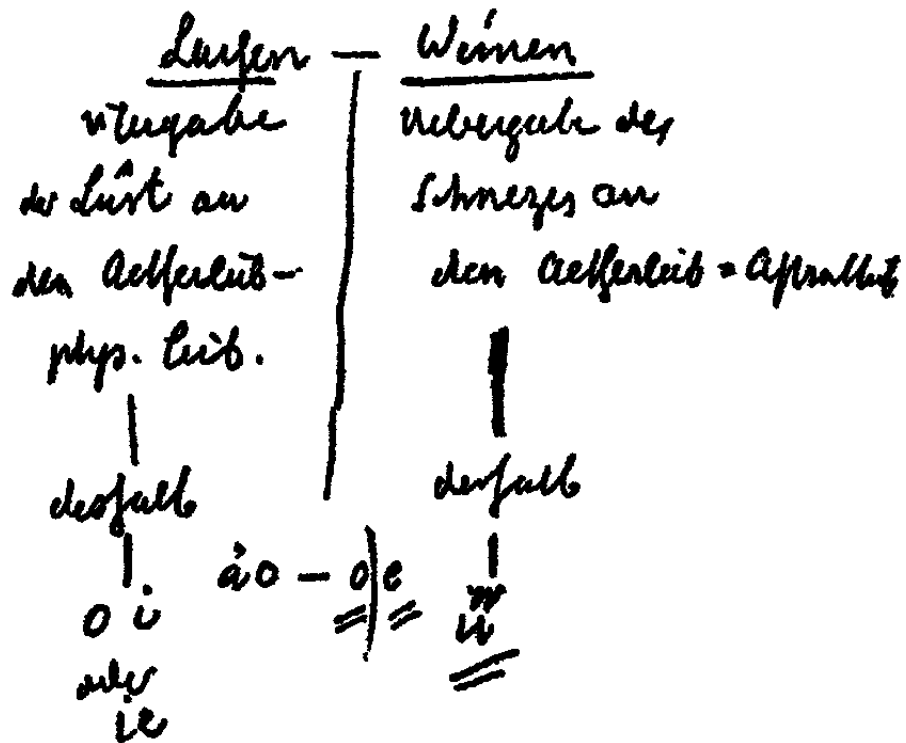 Lachen — Weinen
Übergabe
der Lust an
den Aetherleib-
phys. Leib.
deshalb
o i
oder
ie
Uebergabe des
Schmerzes an
den Aetherleib = Astralleib
deshalb
ao - o e